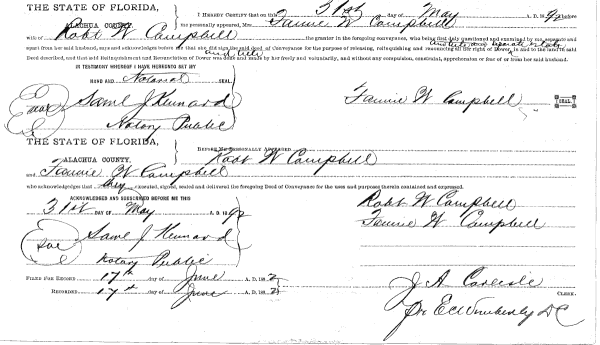 THE STATE OF FLORIDA,
ALACHUA COUNTY.
I HEREBY CERTIFY that on this 31st day of May A. D. 1892 before
me personally appeared, Mrs. Fannie W Campbell
wife of Robt W Campbell the grantor in the foregoing conveyance, who being first duly examined by me separate and
apart from her said husband, says and acknowledges before me that she did sign the said deed of Conveyance for the purpose of releasing, relinquishing and renouncing all her right of Dower, in and to the land in said
Deed described, and that said Relinquishment and Renunciation of Dower was done and made by her freely and voluntarily, and without any compulsion, constraint, apprehension or fear of or from her said husband.
IN TESTIMONY WHEREOF I HAVE HEREUNTO SET MY
HAND AND Notarial SEAL.
Saml J Kennard
Fannie W Campbell SEAL.
Notary Public
THE STATE OF FLORIDA,
ALACHUA COUNTY.
BEFORE ME PERSONALLY APPEARED Robt W Campbell
and Fannie W Campbell
who acknowledges that they executed, signed, sealed and delivered the foregoing Deed of Conveyance for the uses and purposes therein contained and expressed.
ACKNOWLEDGED AND SUBSCRIBED BEFORE ME THIS
31st DAY OF May A. D. 1892
Robt W Campbell
Fannie W Campbell
Saml J Kennard
Notary Public
FILED FOR RECORD 17th day of June A. D. 1892
RECORDED 17th day of June A. D. 1892
J A Carlisle CLERK.
Pr E C Wimberly DC